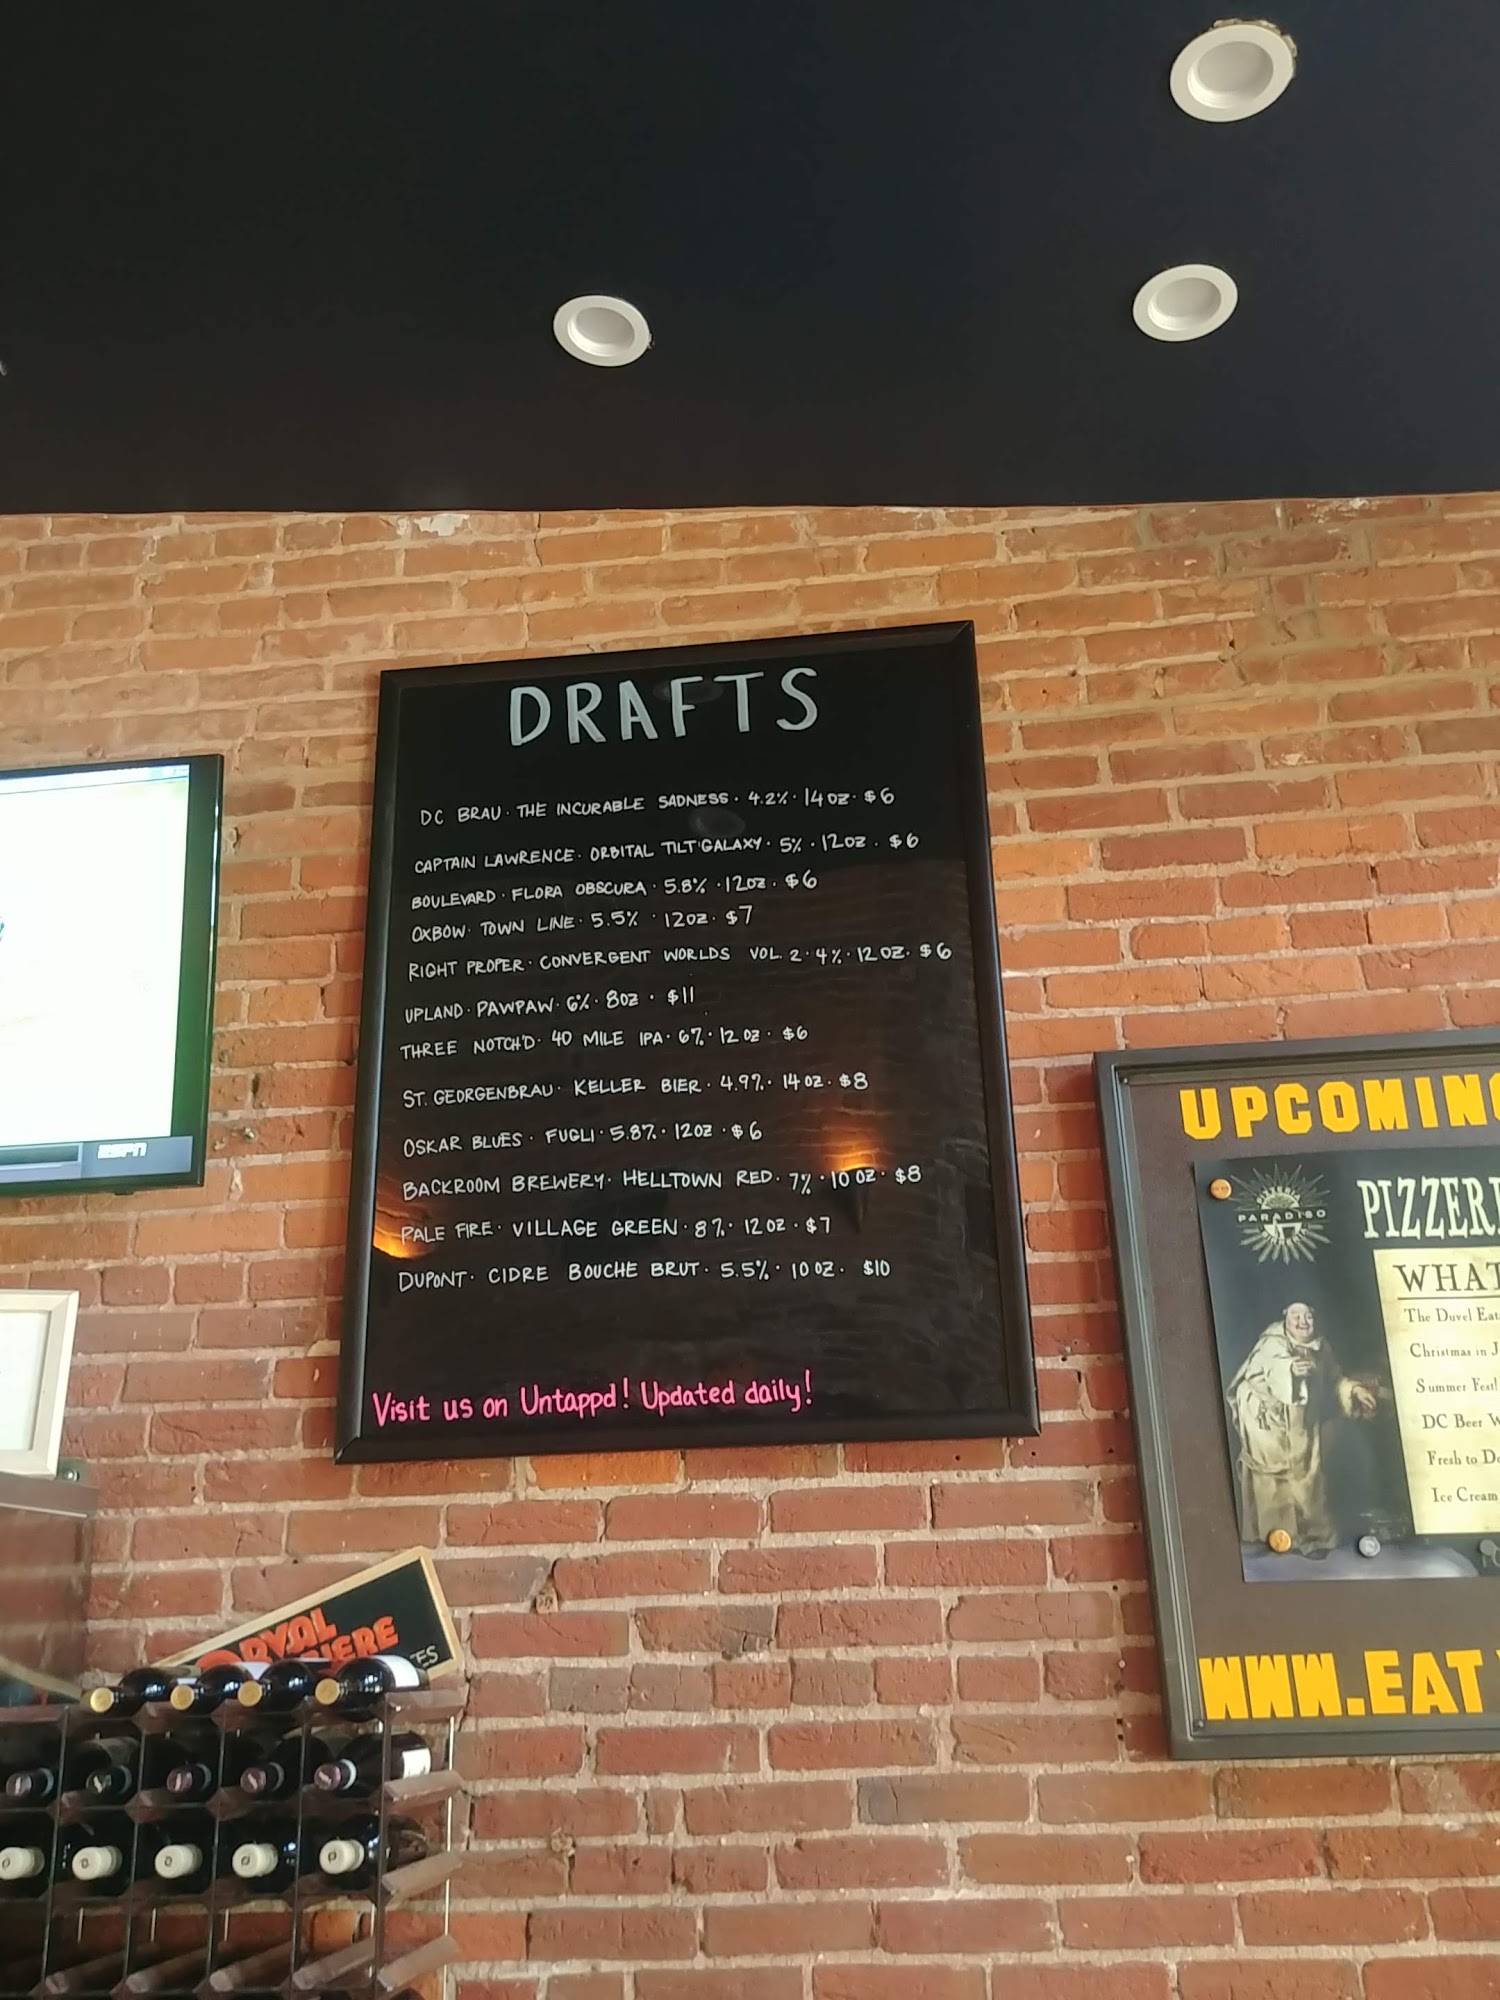 DRAFTS
DC BRAU · THE INCURABLE SADNESS · 4.2% · 14 OZ · $6
CAPTAIN LAWRENCE · ORBITAL TILT · GALAXY · 5% · 12OZ · $6
BOULEVARD · FLORA OBSCURA · 5.8% · 12OZ · $6
OXBOW · TOWN LINE · 5.5% · 12OZ · $7
RIGHT PROPER · CONVERGENT WORLDS VOL. 2 · 4% · 12 OZ · $6
UPLAND · PAWPAW · 6% · 8OZ · $11
THREE NOTCH'D · 40 MILE IPA · 6% · 12 OZ · $6
ST. GEORGENBRAU · KELLER BIER · 4.9% · 14 OZ · $8
OSKAR BLUES · FUGLI · 5.8% · 12OZ · $6
BACKROOM BREWERY · HELLTOWN RED · 7% · 10 OZ · $8
PALE FIRE · VILLAGE GREEN · 8% · 12 OZ · $7
DUPONT · CIDRE BOUCHE BRUT · 5.5% · 10 OZ · $10
Visit us on Untappd! Updated daily!
ESPN
UPCOMING
PARADISO
PIZZERI
WHAT
The Duvel Eat
Christmas in J
Summer Fest!
DC Beer W
Fresh to D
Ice Cream
WWW.EAT